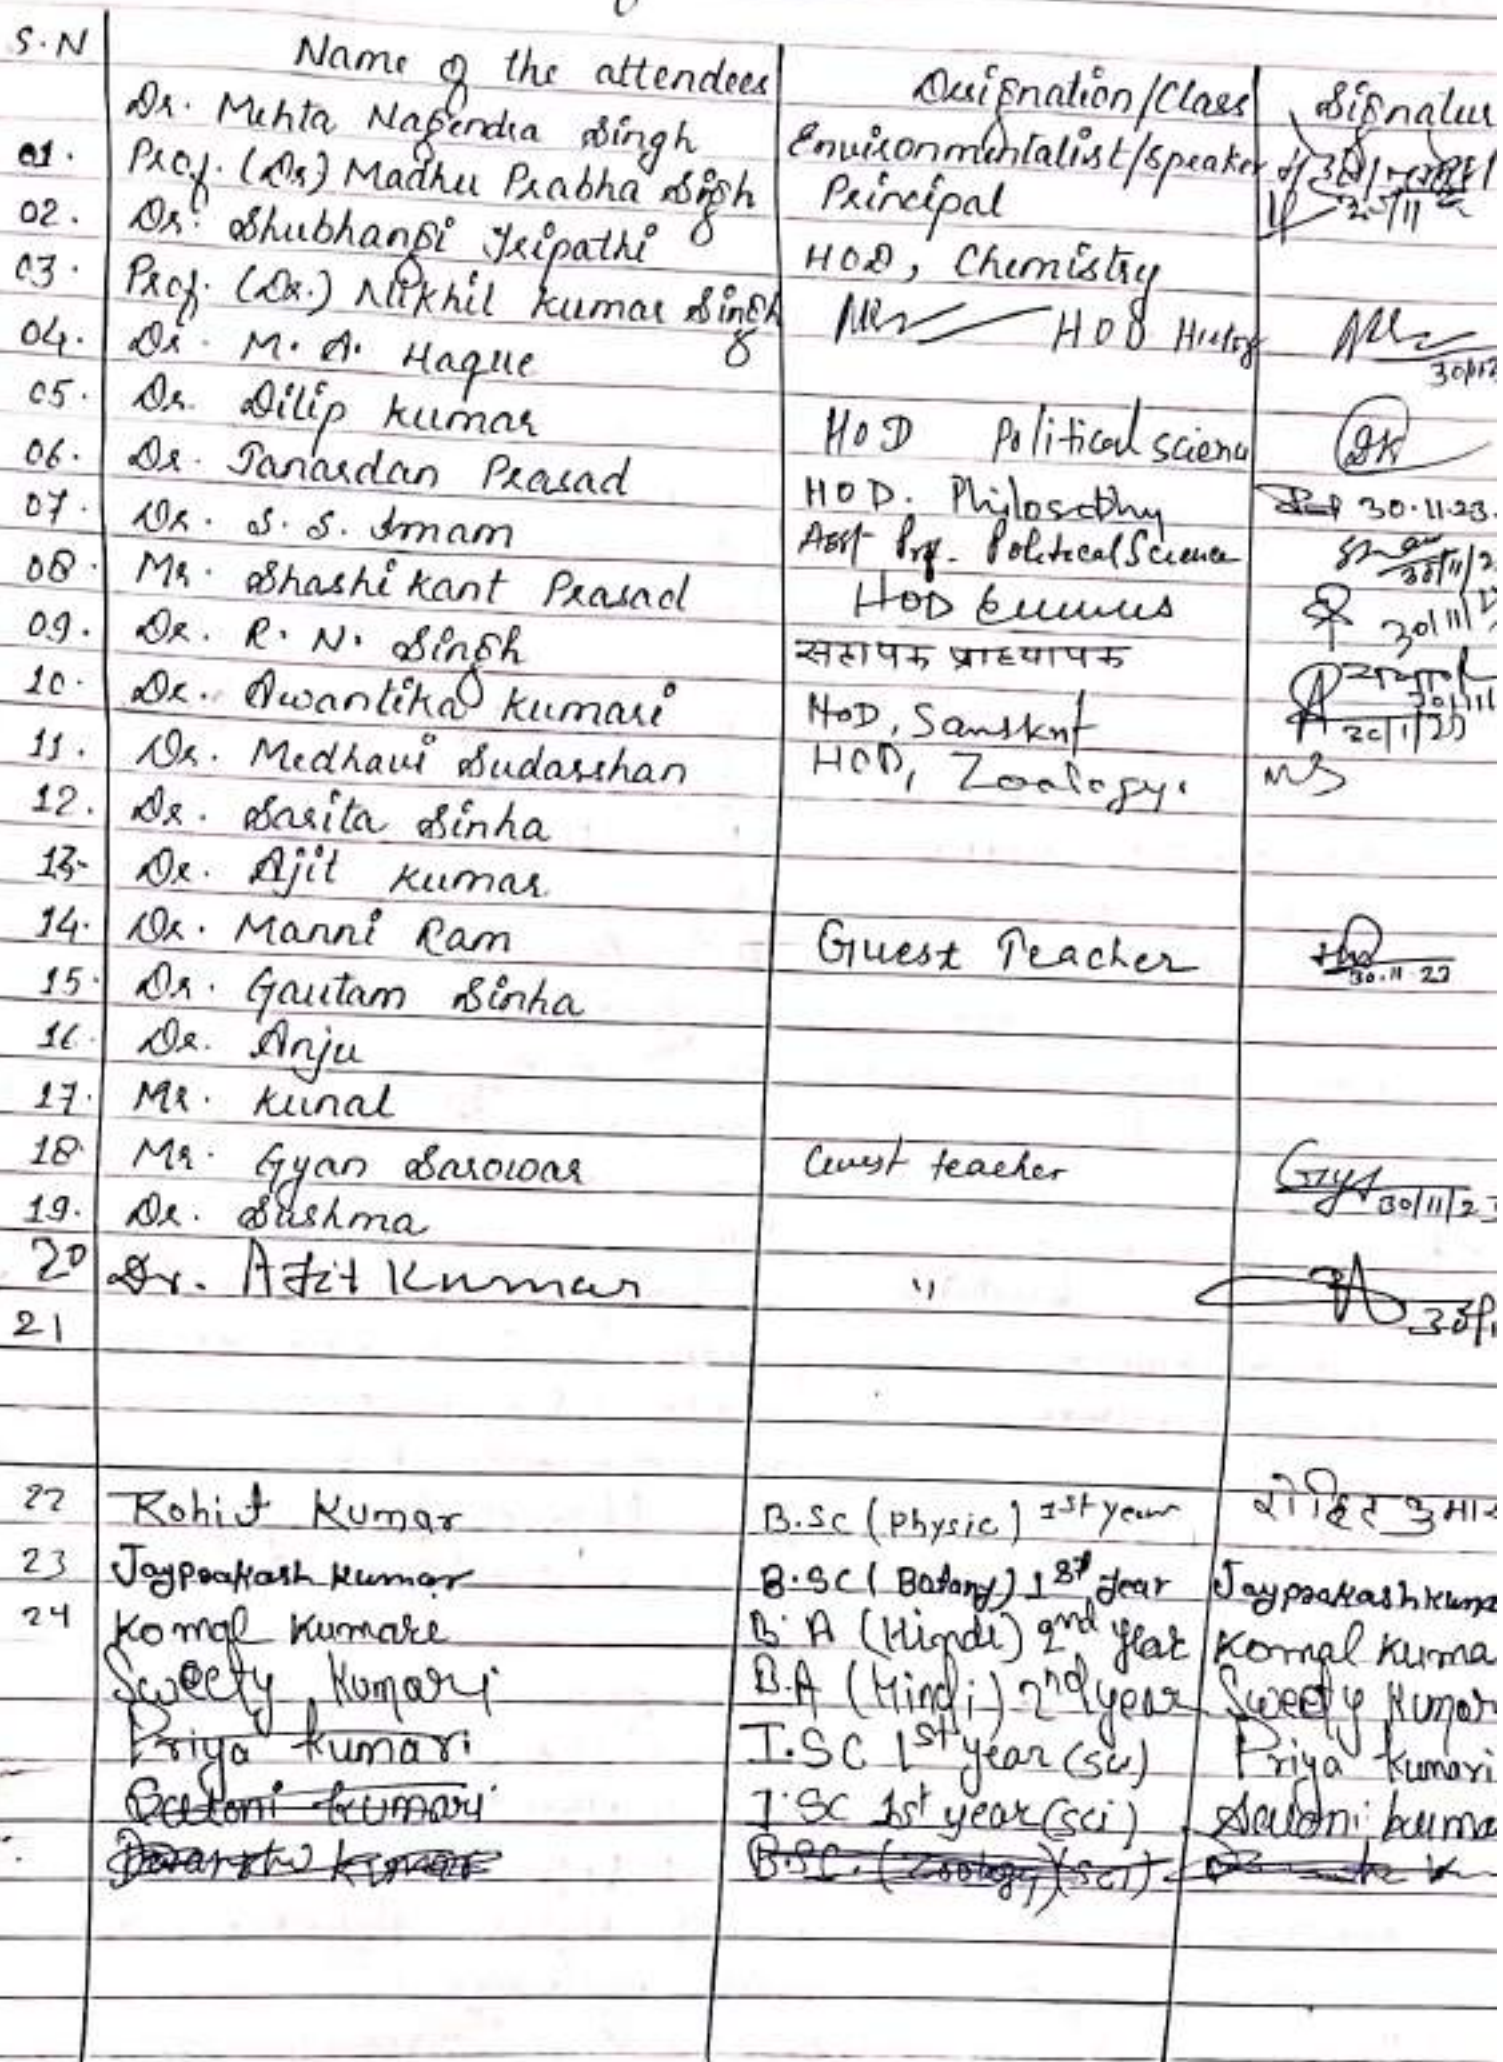 S.N Name of the attendees Designation/Class Signatur
Dr. Mehta Nagendra Singh Environmentalist/Speaker
01. Prof. (Dr) Madhu Prabha Singh Principal
02. Dr. Shubhangi Tripathi HOD, Chemistry
03. Prof. (Dr.) Nikhil Kumar Singh HOD
04. Dr. M. A. Haque
05. Dr. Dilip Kumar HOD Political Scienc DK
06. Dr. Janardan Prasad HOD. Philosophy 30.11.23.
07. Dr. S. S. Imam Asst Prof. Political Science 30/11/2
08. Mr. Shashi Kant Prasad HOD 30/11/
09. Dr. R. N. Singh सहायक प्राध्यापक
10. Dr. Awantika Kumari HOD, Sanskrit
11. Dr. Medhavi Sudarshan HOD, Zoology. MS
12. Dr. Sarita Sinha
13. Dr. Ajit Kumar
14. Dr. Manni Ram Guest Teacher 30.11.23
15. Dr. Gautam Sinha
16. Dr. Anju
17. Mr. Kunal
18. Mr. Gyan Sarowar Guest teacher 30/11/23
19. Dr. Sushma
20 Dr. Ajit Kumar "
21
22 Rohit Kumar B.SC (Physic) 1st year रोहित कुमार
23 Jayprakash Kumar B.SC (Botany) 1st year Jayprakash Kuma
24 Komal Kumari B.A (Hindi) 2nd year Komal Kuma
Sweety Kumari B.A (Hindi) 2nd year Sweety Kumar
Priya Kumari I.SC 1st year (sci) Priya Kumari
Saloni Kumari I.SC 1st year (sci) Saloni kuma
B.SC. (Zoology) (sci)